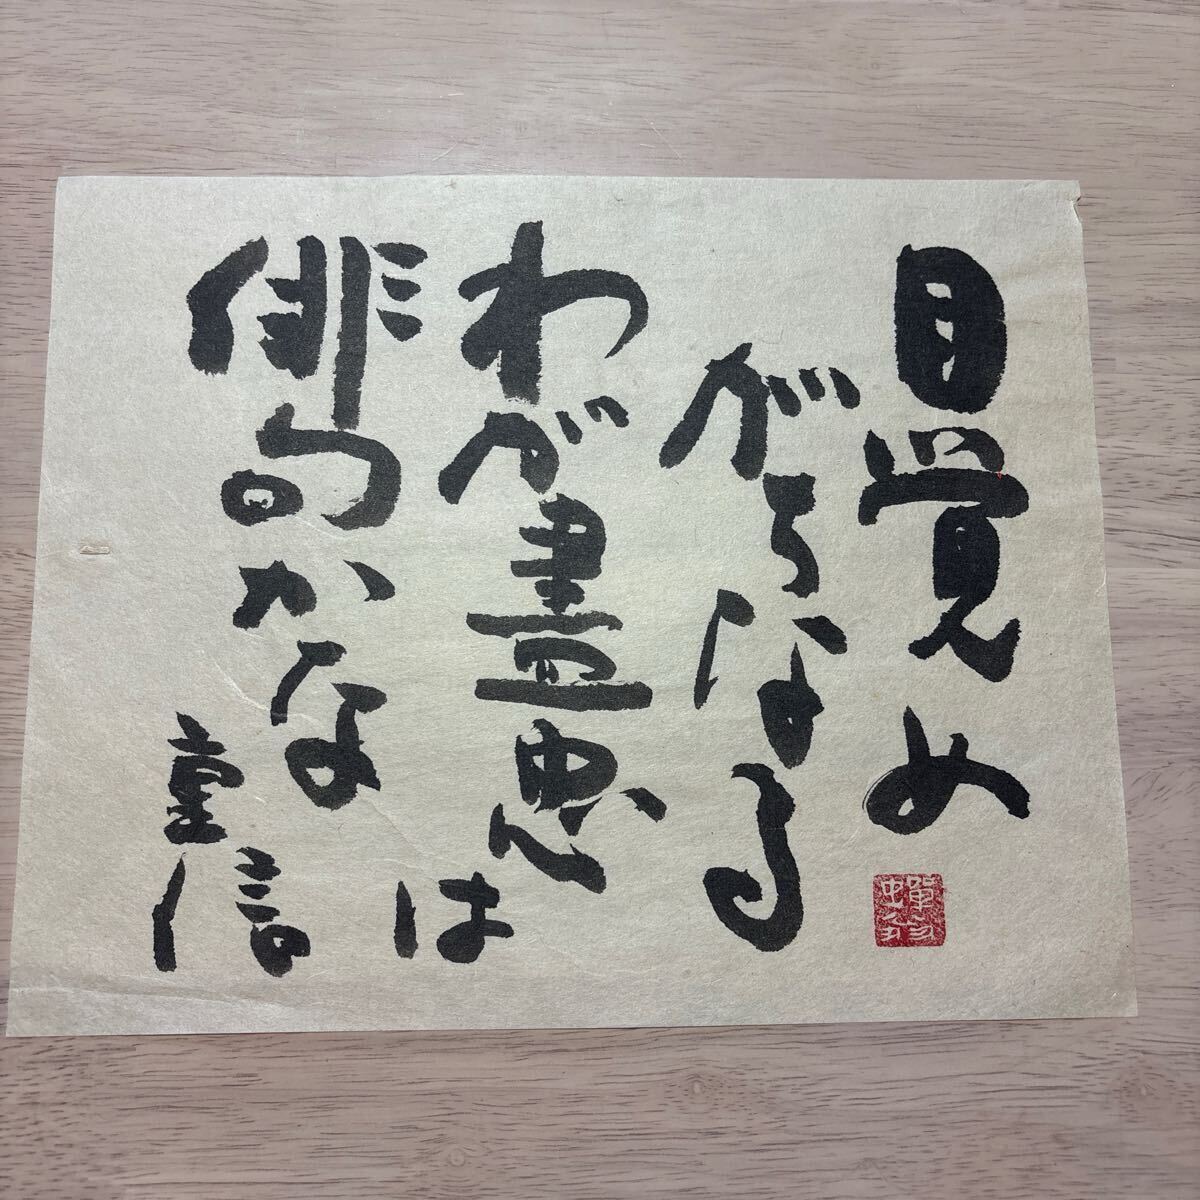 目覚め
がちなる
わが盡忠は
俳句かな
重信